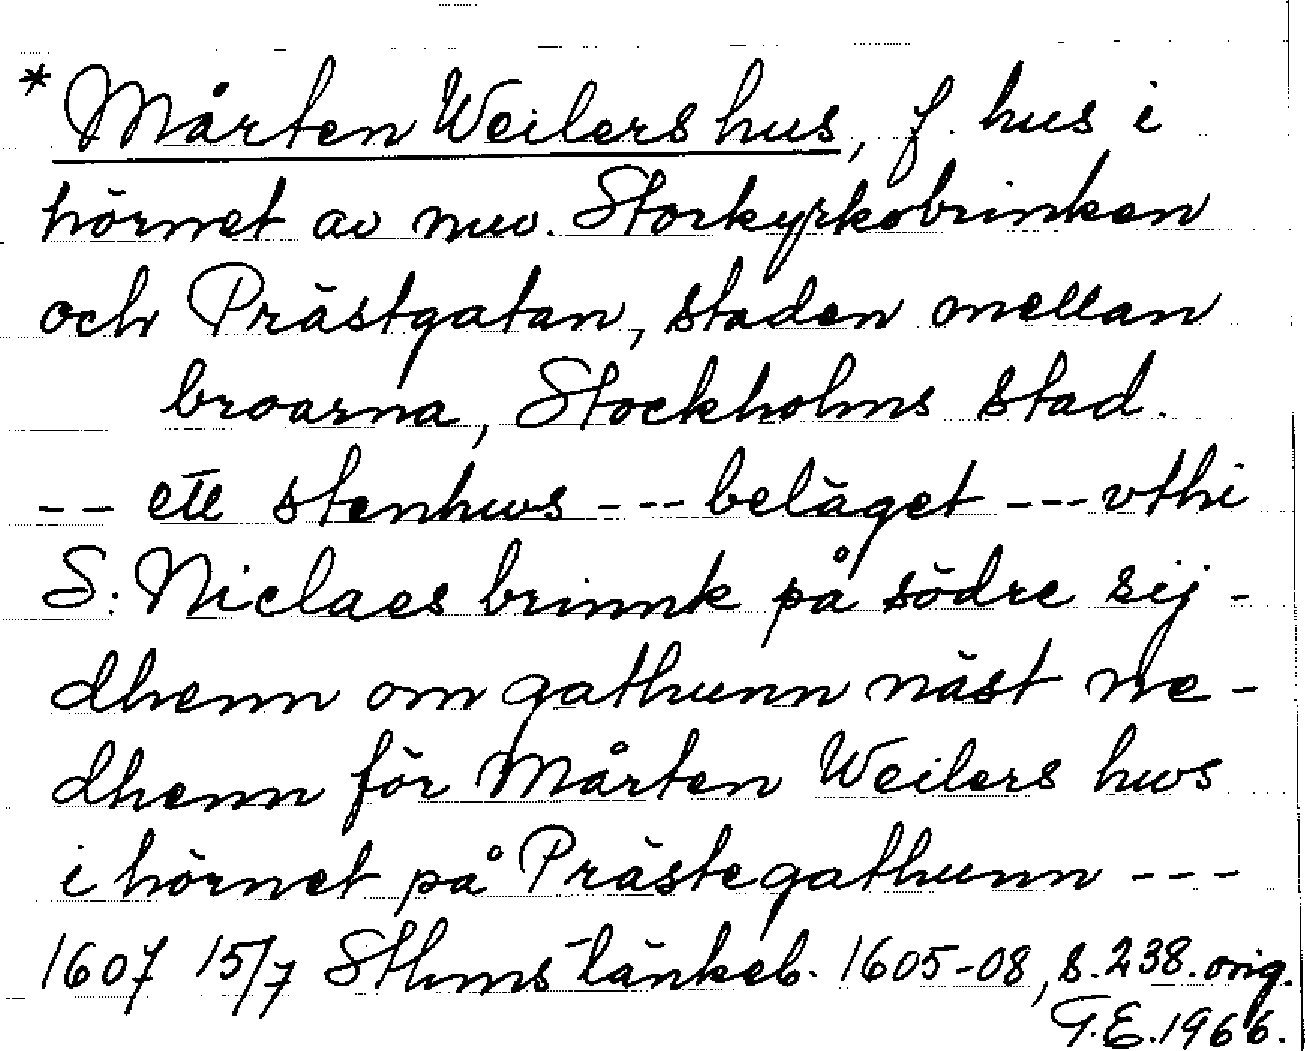 * Mårten Weilers hus, f. hus i
hörnet av nuv. Storkyrkobrinken
och Prästgatan, staden mellan
broarna, Stockholms stad.
-- ett stenhws --- beläget --- vthi
S: Niclaes brinnk på södre sij-
dhenn om gathunn näst ne-
dhenn för Mårten Weilers hws
i hörnet på Prästegathunn ---
1607 15/7 Sthms tänkeb. 1605-08, s. 238. orig.
T.E. 1966.